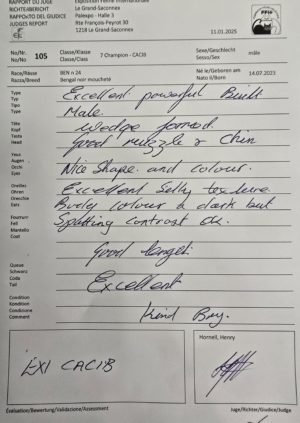 RAPPORT DU JUGE
RICHTERBERICHT
RAPPORTO DEL GIUDICE
JUDGES REPORT
Exposition Féline Internationale
Le Grand-Saconnex
Palexpo - Halle 3
Rte François-Peyrot 30
1218 Le Grand-Saconnex
FIFe
11.01.2025
No/Nr.
No/No
105
Classe/Klasse
Classe/Class
7 Champion - CACIB
Sexe/Geschlecht
Sesso/Sex
mâle
Race/Rasse
Razza/Breed
BEN n 24
Bengal noir moucheté
Né le/Geboren am
Nato il/Born
14.07.2023
Type
Typ
Tipo
Type
Excellent powerful Built
Male.
Tête
Kopf
Testa
Head
Wedge formed.
Good muzzle & Chin
Yeux
Augen
Occhi
Eyes
Nice Shape and colour.
Oreilles
Ohren
Orecchie
Ears
Excellent Silky texture
Body colour a dark but
Fourrure
Fell
Mantello
Coat
Spotting contrast ok.
Good lenght
Queue
Schwanz
Coda
Tail
Excellent
Condition
Kondition
Condizione
Comment
Kind Boy.
EX1 CACIB
Hornell, Henry
Évaluation/Bewertung/Validazione/Assessment
Juge/Richter/Giudice/Judge